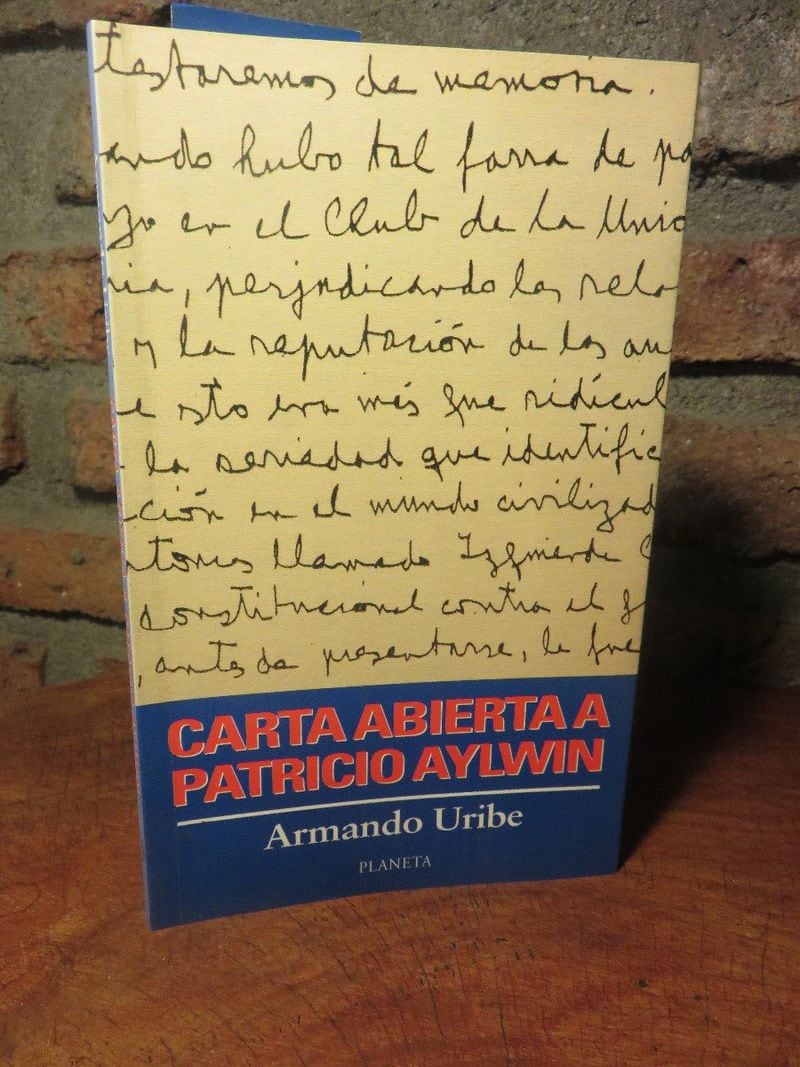 testaremos de memoria.
ando hubo tal farra de pa
yo en el Club de la Unio
ia, perjudicando las rela
y la reputación de los au
e esto era más que ridícul
la seriedad que identific
ción en el mundo civilizad
ntonces llamado Izquierda C
constitucional contra el g
, antes de presentarse, le fue
CARTA ABIERTA A
PATRICIO AYLWIN
Armando Uribe
PLANETA